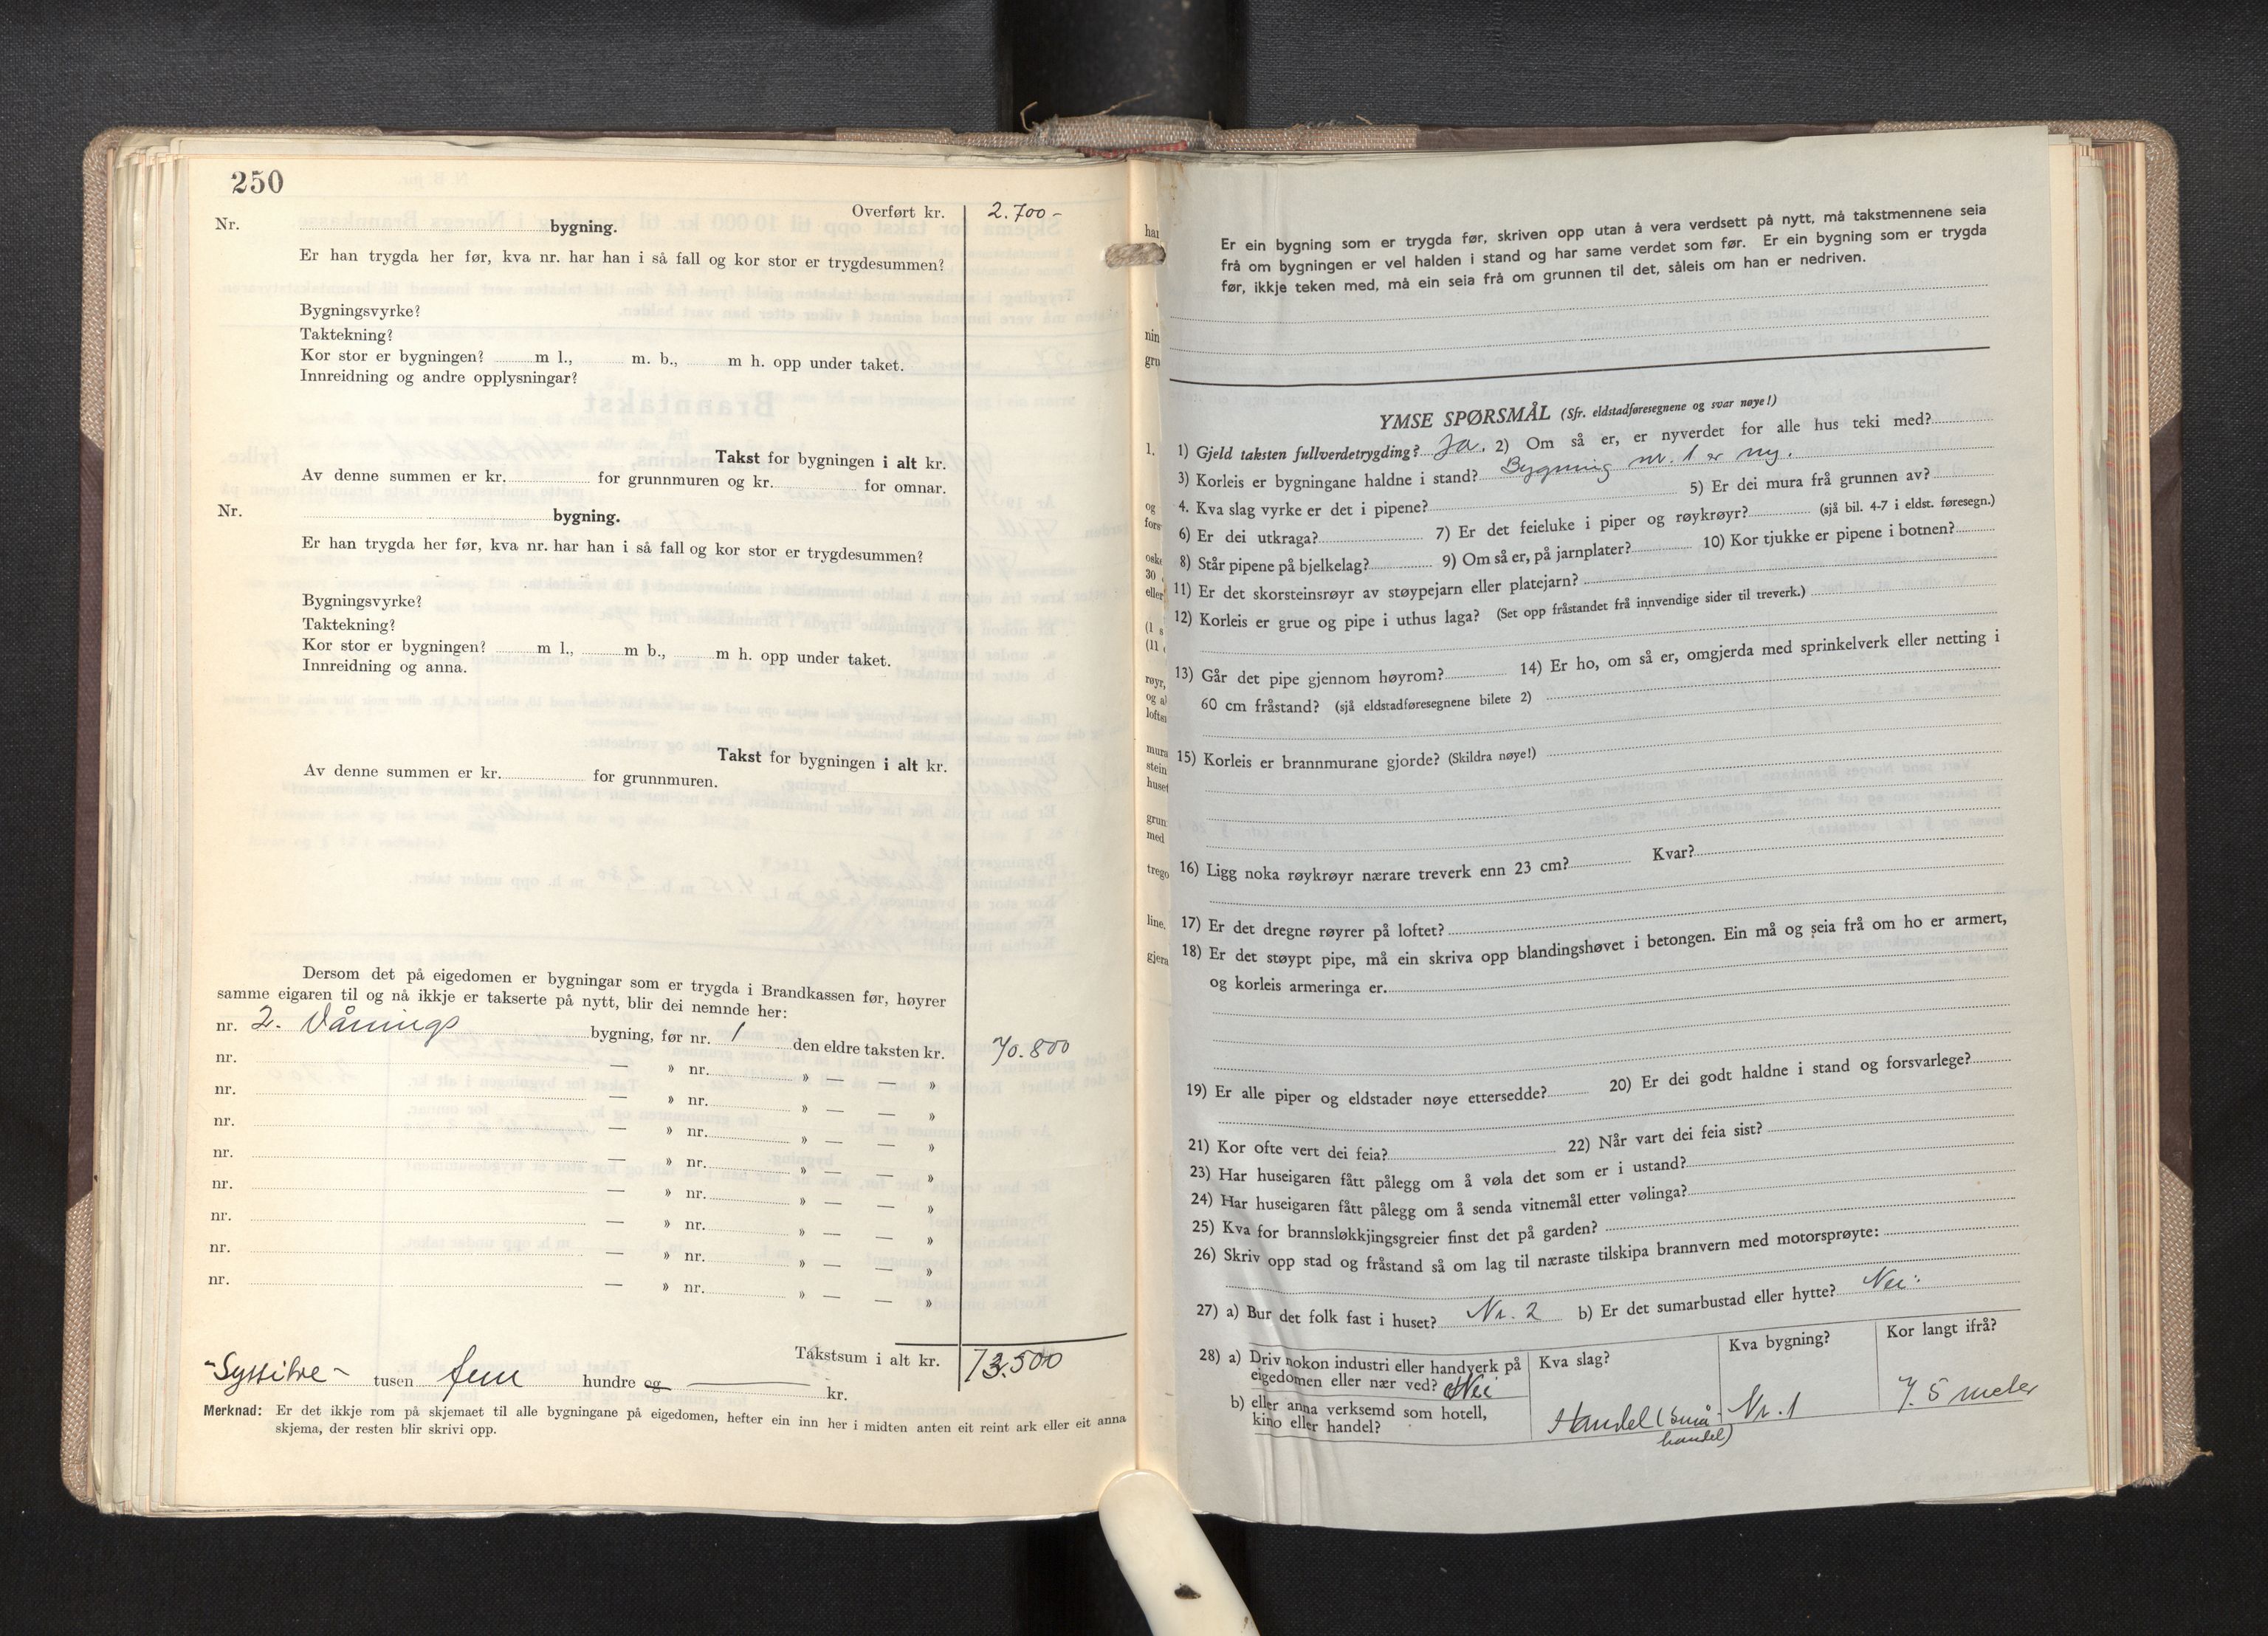 250
Overført kr. 2.700-
Nr. bygning.
Er han trygda her før, kva nr. har han i så fall og kor stor er trygdesummen?
Bygningsvyrke?
Taktekning?
Kor stor er bygningen? m l., m. b., m h. opp under taket.
Innreidning og andre opplysningar?
Takst for bygningen i alt kr.
Av denne summen er kr. for grunnmuren og kr. for omnar.
Nr. bygning.
Er han trygda her før, kva nr. har han i så fall og kor stor er trygdesummen?
Bygningsvyrke?
Taktekning?
Kor stor er bygningen? m l., m b., m h. opp under taket.
Innreidning og anna.
Takst for bygningen i alt kr.
Av denne summen er kr. for grunnmuren.
Dersom det på eigedomen er bygningar som er trygda i Brandkassen før, høyrer
samme eigaren til og nå ikkje er takserte på nytt, blir dei nemnde her:
nr. 2. Vånings bygning, før nr. 1 den eldre taksten kr. 70.800
nr. — » nr. » — — »
nr. — » nr. » — — »
nr. — » nr. » — — »
nr. — » nr. » — — »
nr. — » nr. » — — »
nr. — » nr. » — — »
nr. — » nr. » — — »
nr. — » nr. » — — »
Takstsum i alt kr. 73.500
-Syttitre- tusen fem hundre og — kr.
Merknad: Er det ikkje rom på skjemaet til alle bygningane på eigedomen, hefter ein inn her i midten anten eit reint ark eller eit anna
skjema, der resten blir skrivi opp.
Er ein bygning som er trygda før, skriven opp utan å vera verdsett på nytt, må takstmennene seia
frå om bygningen er vel halden i stand og har same verdet som før. Er ein bygning som er trygda
før, ikkje teken med, må ein seia frå om grunnen til det, såleis om han er nedriven.
YMSE SPØRSMÅL (Sfr. eldstadføresegnene og svar nøye!)
1) Gjeld taksten fullverdetrygding? Ja. 2) Om så er, er nyverdet for alle hus teki med?
3) Korleis er bygningane haldne i stand? Bygning nr. 1 er ny.
4. Kva slag vyrke er det i pipene? 5) Er dei mura frå grunnen av?
6) Er dei utkraga? 7) Er det feieluke i piper og røykrøyr? (sjå bil. 4-7 i eldst. føresegn.)
8) Står pipene på bjelkelag? 9) Om så er, på jarnplater? 10) Kor tjukke er pipene i botnen?
11) Er det skorsteinsrøyr av støypejarn eller platejarn?
12) Korleis er grue og pipe i uthus laga? (Set opp fråstandet frå innvendige sider til treverk.)
13) Går det pipe gjennom høyrom? 14) Er ho, om så er, omgjerda med sprinkelverk eller netting i
60 cm fråstand? (sjå eldstadføresegnene bilete 2)
15) Korleis er brannmurane gjorde? (Skildra nøye!)
16) Ligg noka røykrøyr nærare treverk enn 23 cm? Kvar?
17) Er det dregne røyrer på loftet?
18) Er det støypt pipe, må ein skriva opp blandingshøvet i betongen. Ein må og seia frå om ho er armert,
og korleis armeringa er.
19) Er alle piper og eldstader nøye ettersedde? 20) Er dei godt haldne i stand og forsvarlege?
21) Kor ofte vert dei feia? 22) Når vart dei feia sist?
23) Har huseigaren fått pålegg om å vøla det som er i ustand?
24) Har huseigaren fått pålegg om å senda vitnemål etter vølinga?
25) Kva for brannsløkkjingsgreier finst det på garden?
26) Skriv opp stad og fråstand så om lag til næraste tilskipa brannvern med motorsprøyte:
27) a) Bur det folk fast i huset? Nr. 2 b) Er det sumarbustad eller hytte? Nei.
28) a) Driv nokon industri eller handverk på Kva slag? Kva bygning? Kor langt ifrå?
eigedomen eller nær ved? Nei
b) eller anna verksemd som hotell,
kino eller handel? Handel (små- Nr. 1 7.5 meter
handel)